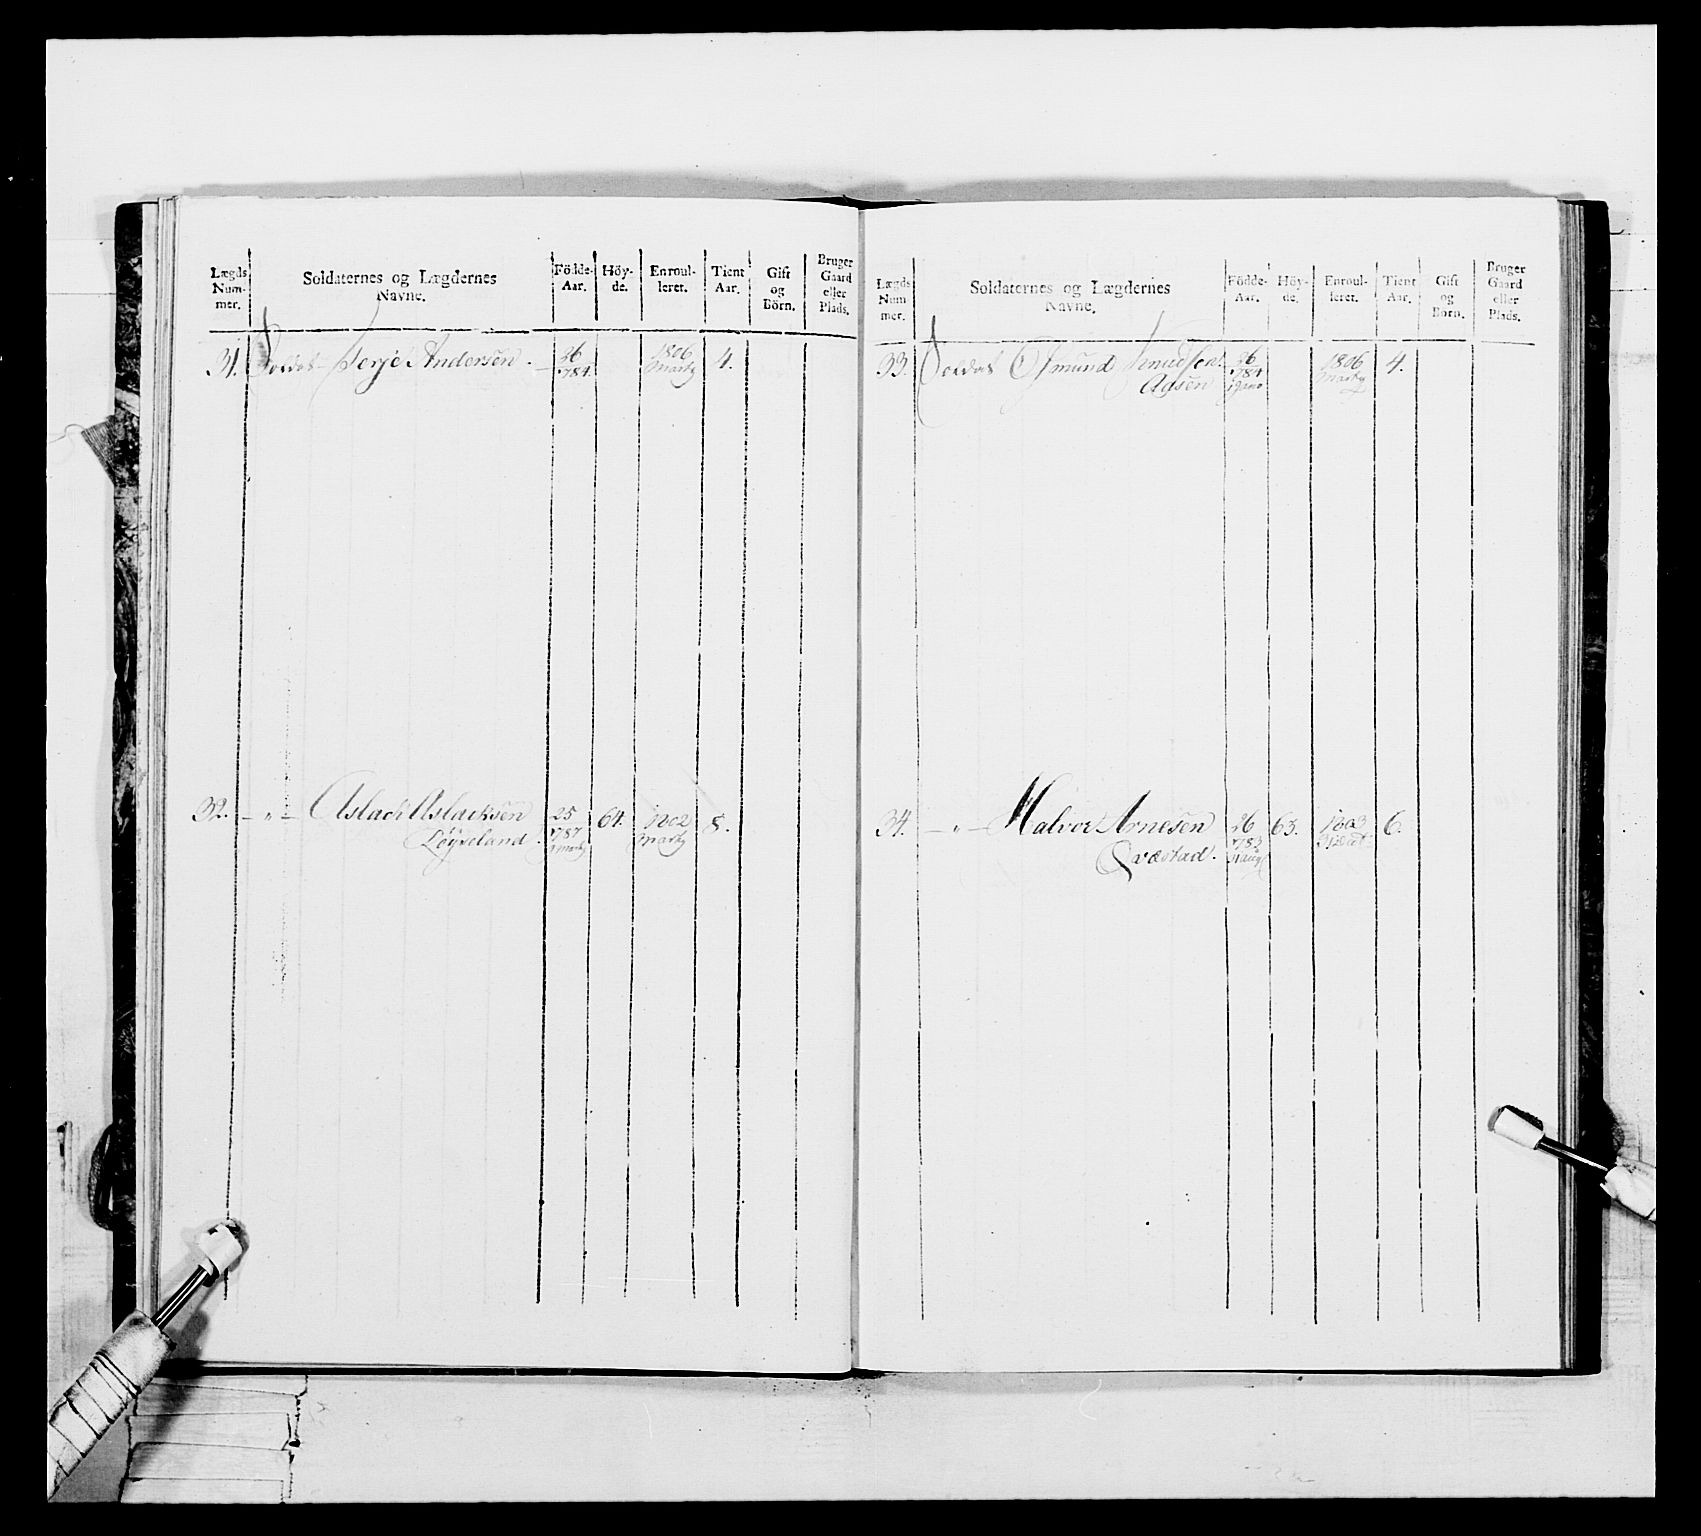 Lægds Num- mer.
Soldaternes og Lægdernes Navne.
Födde- Aar.
Höy- de.
Enroul- leret.
Tient Aar.
Gift og Börn.
Bruger Gaard eller Plads.
31. Soldat Terje Andersen. 26 1784. 1806 4.
Martz
32. — " — Aslach Aslachsen 25 64. 1802 8.
Löyseland. 1787 Martz
Lægds Num mer.
Soldaternes og Lægdernes Navne.
Födde- Aar.
Höy- de.
Enroul- leret.
Tient Aar.
Gift og Börn.
Bruger Gaard eller Plads.
33. Soldat Osmund Knudsen 26 1806 4.
Aasen 1784 Martz
34. — " — Halvor Arnesen 26 63. 1803 6.
Qvæstad.